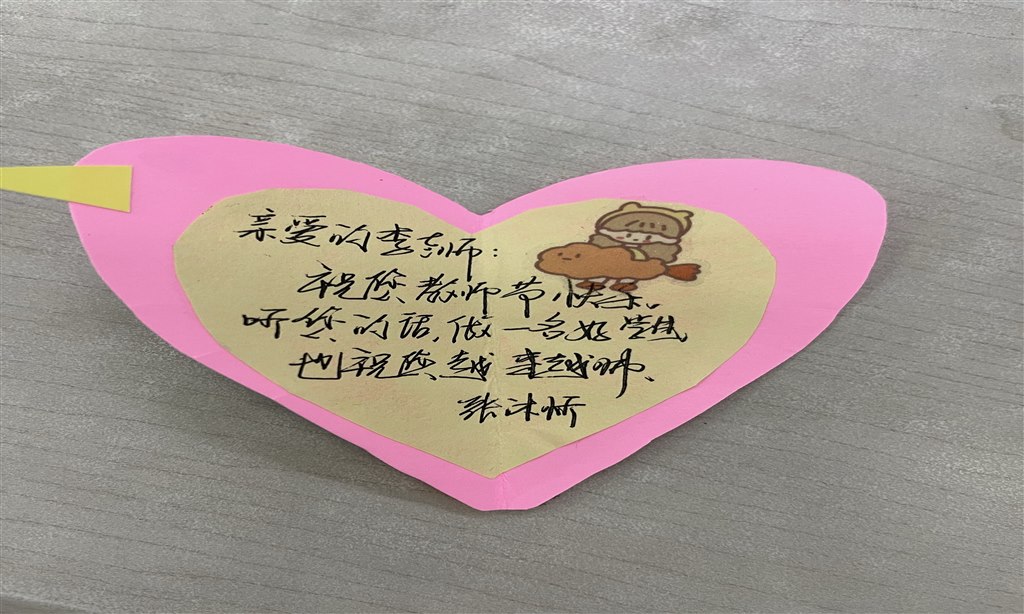 亲爱的李老师：
祝您教师节快乐。
听您的话，做一名好学生
也祝您越来越啊、
张沐忻